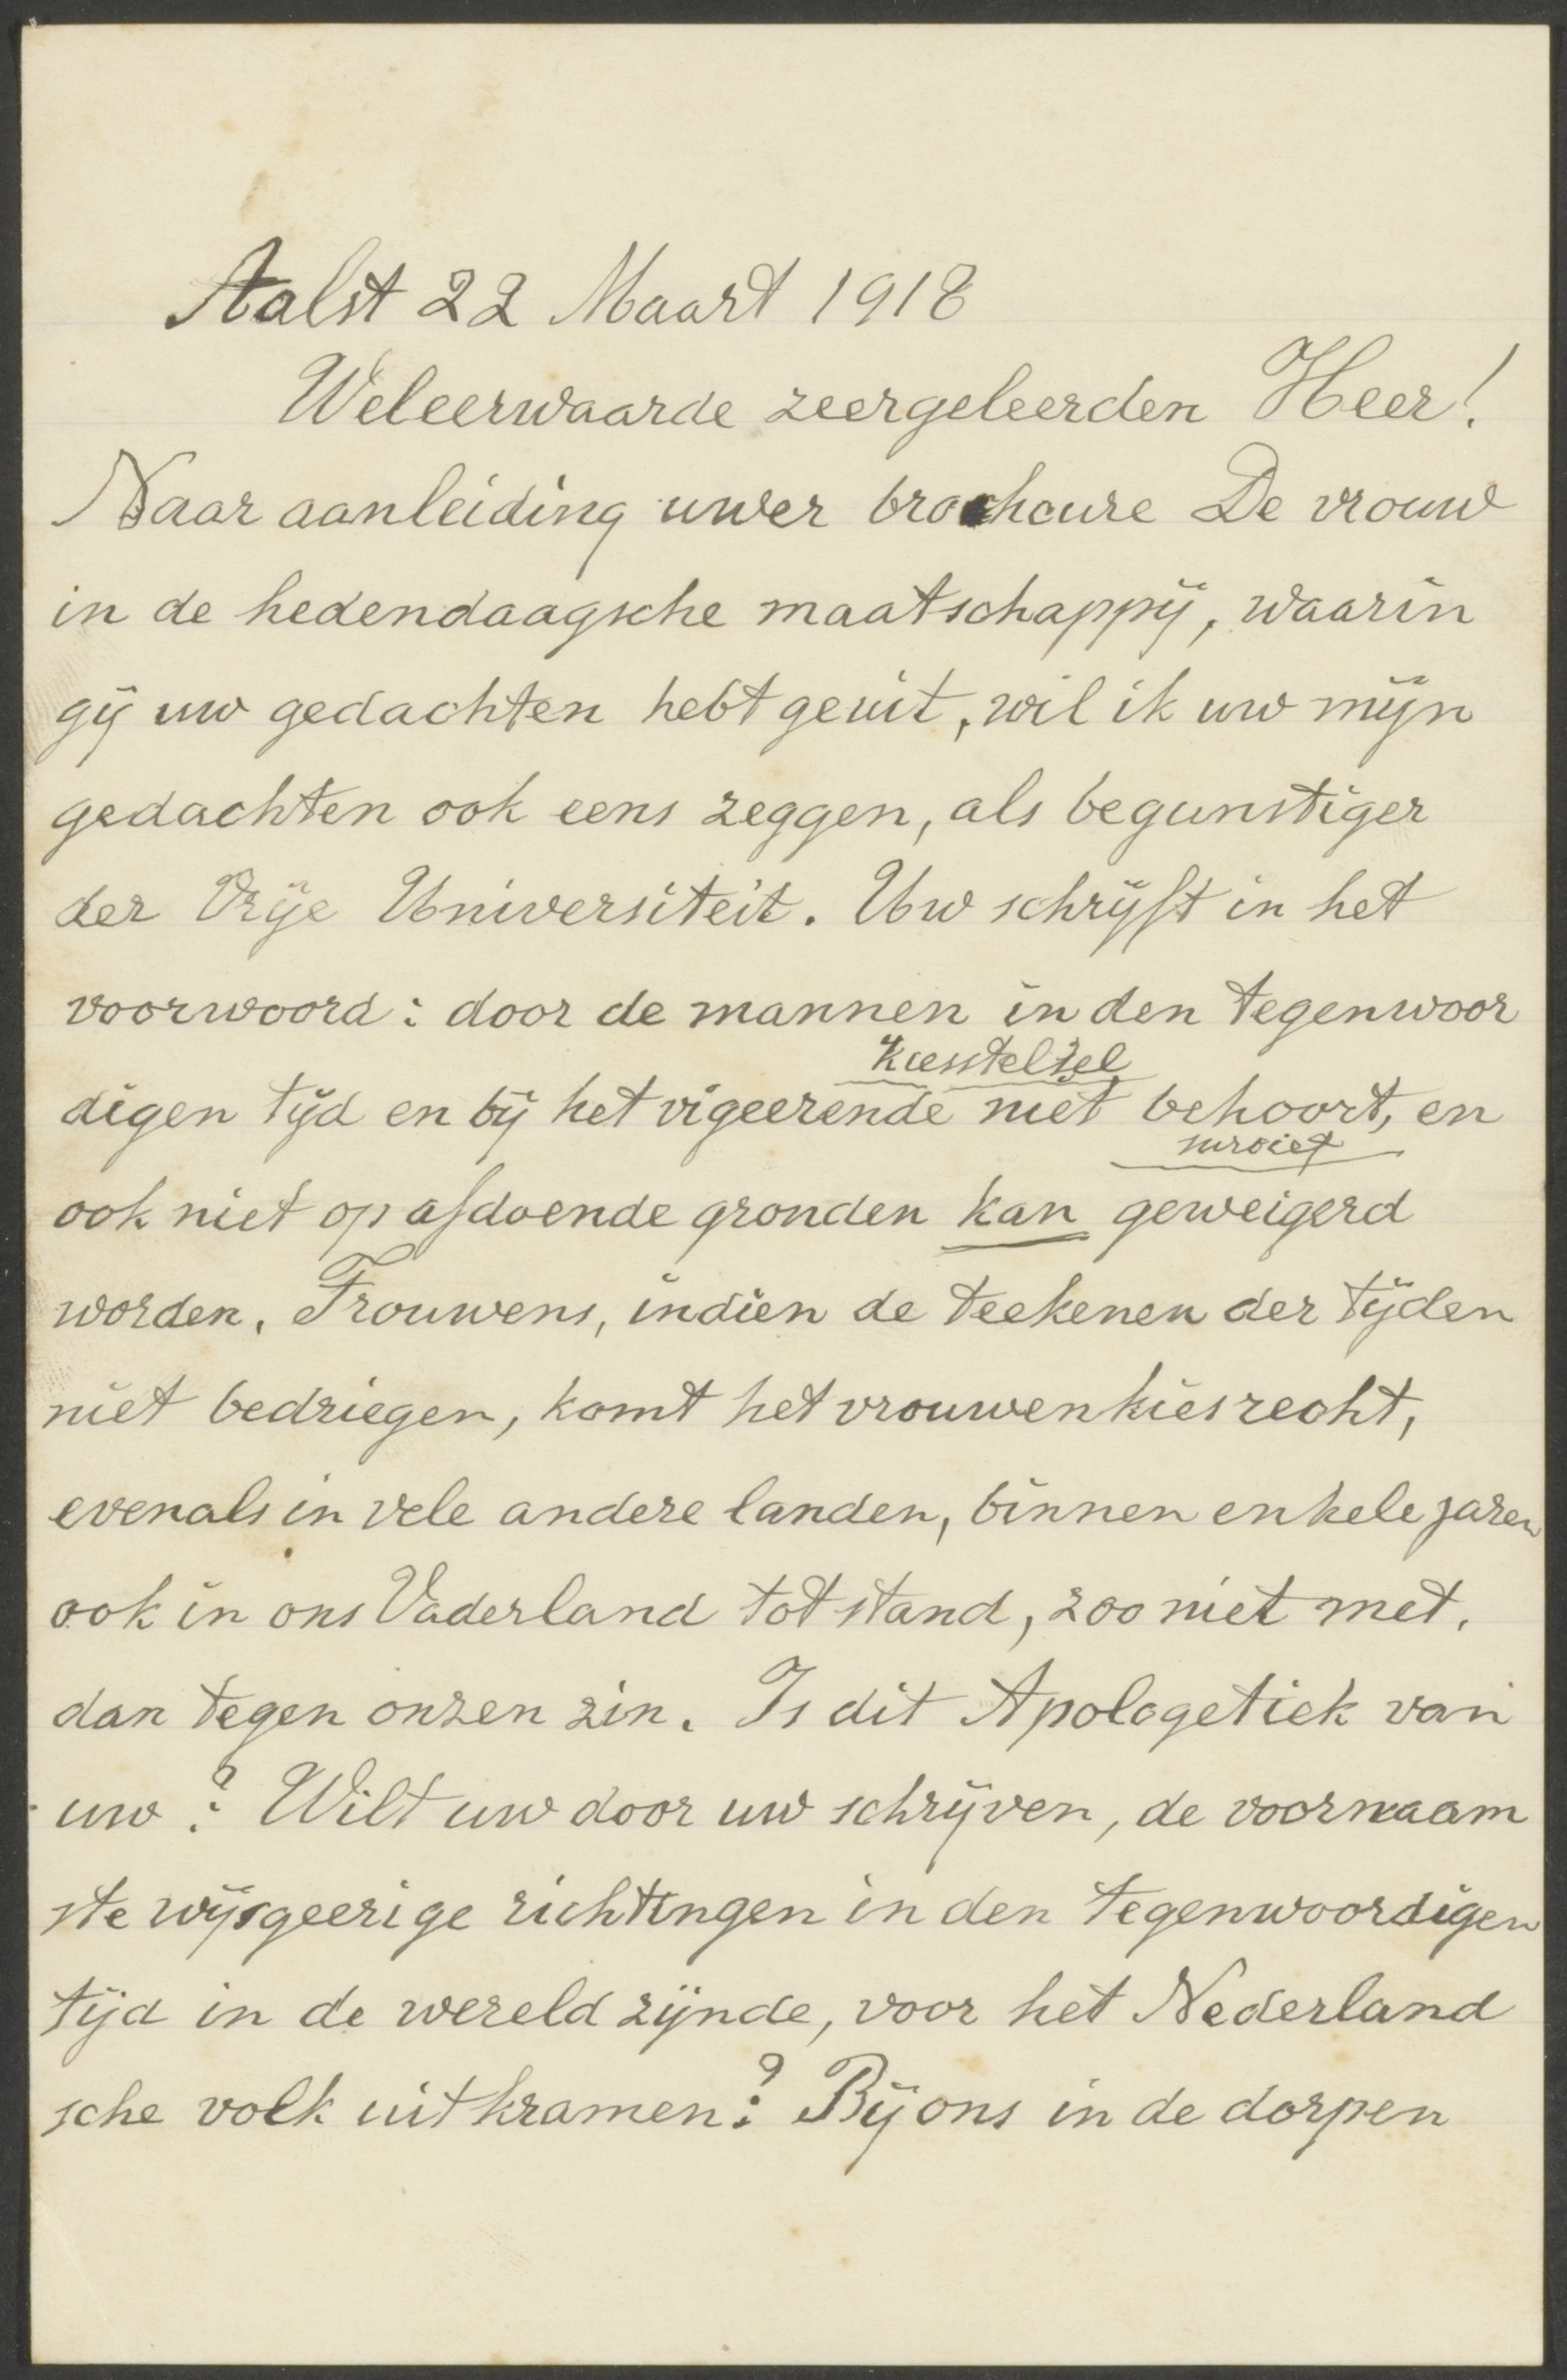 Aalst 22 Maart 1918
Weleerwaarde zeergeleerden Heer!
Naar aanleiding uwer brocheure De vrouw
in de hedendaagsche maatschappij, waarin
gij uw gedachten hebt geuit, wil ik uw mijn
gedachten ook eens zeggen, als begunstiger
der Vrije Universiteit. Uw schrijft in het
voorwoord: door de mannen in den tegenwoor
kiesstelsel
digen tijd en bij het vigeerende niet behoort, en
ook niet op afdoende gronden kan geweigerd
worden. Trouwens, indien de teekenen der tijden
niet bedriegen, komt het vrouwenkiesrecht,
evenals in vele andere landen, binnen enkele jaren
ook in ons Vaderland tot stand, zoo niet met,
dan tegen onzen zin. Is dit Apologetiek van
uw? Wilt uw door uw schrijven, de voornaam
ste wijsgeerige richtingen in den tegenwoordigen
tijd in de wereld zijnde, voor het Nederland
sche volk uitkramen? Bij ons in de dorpen